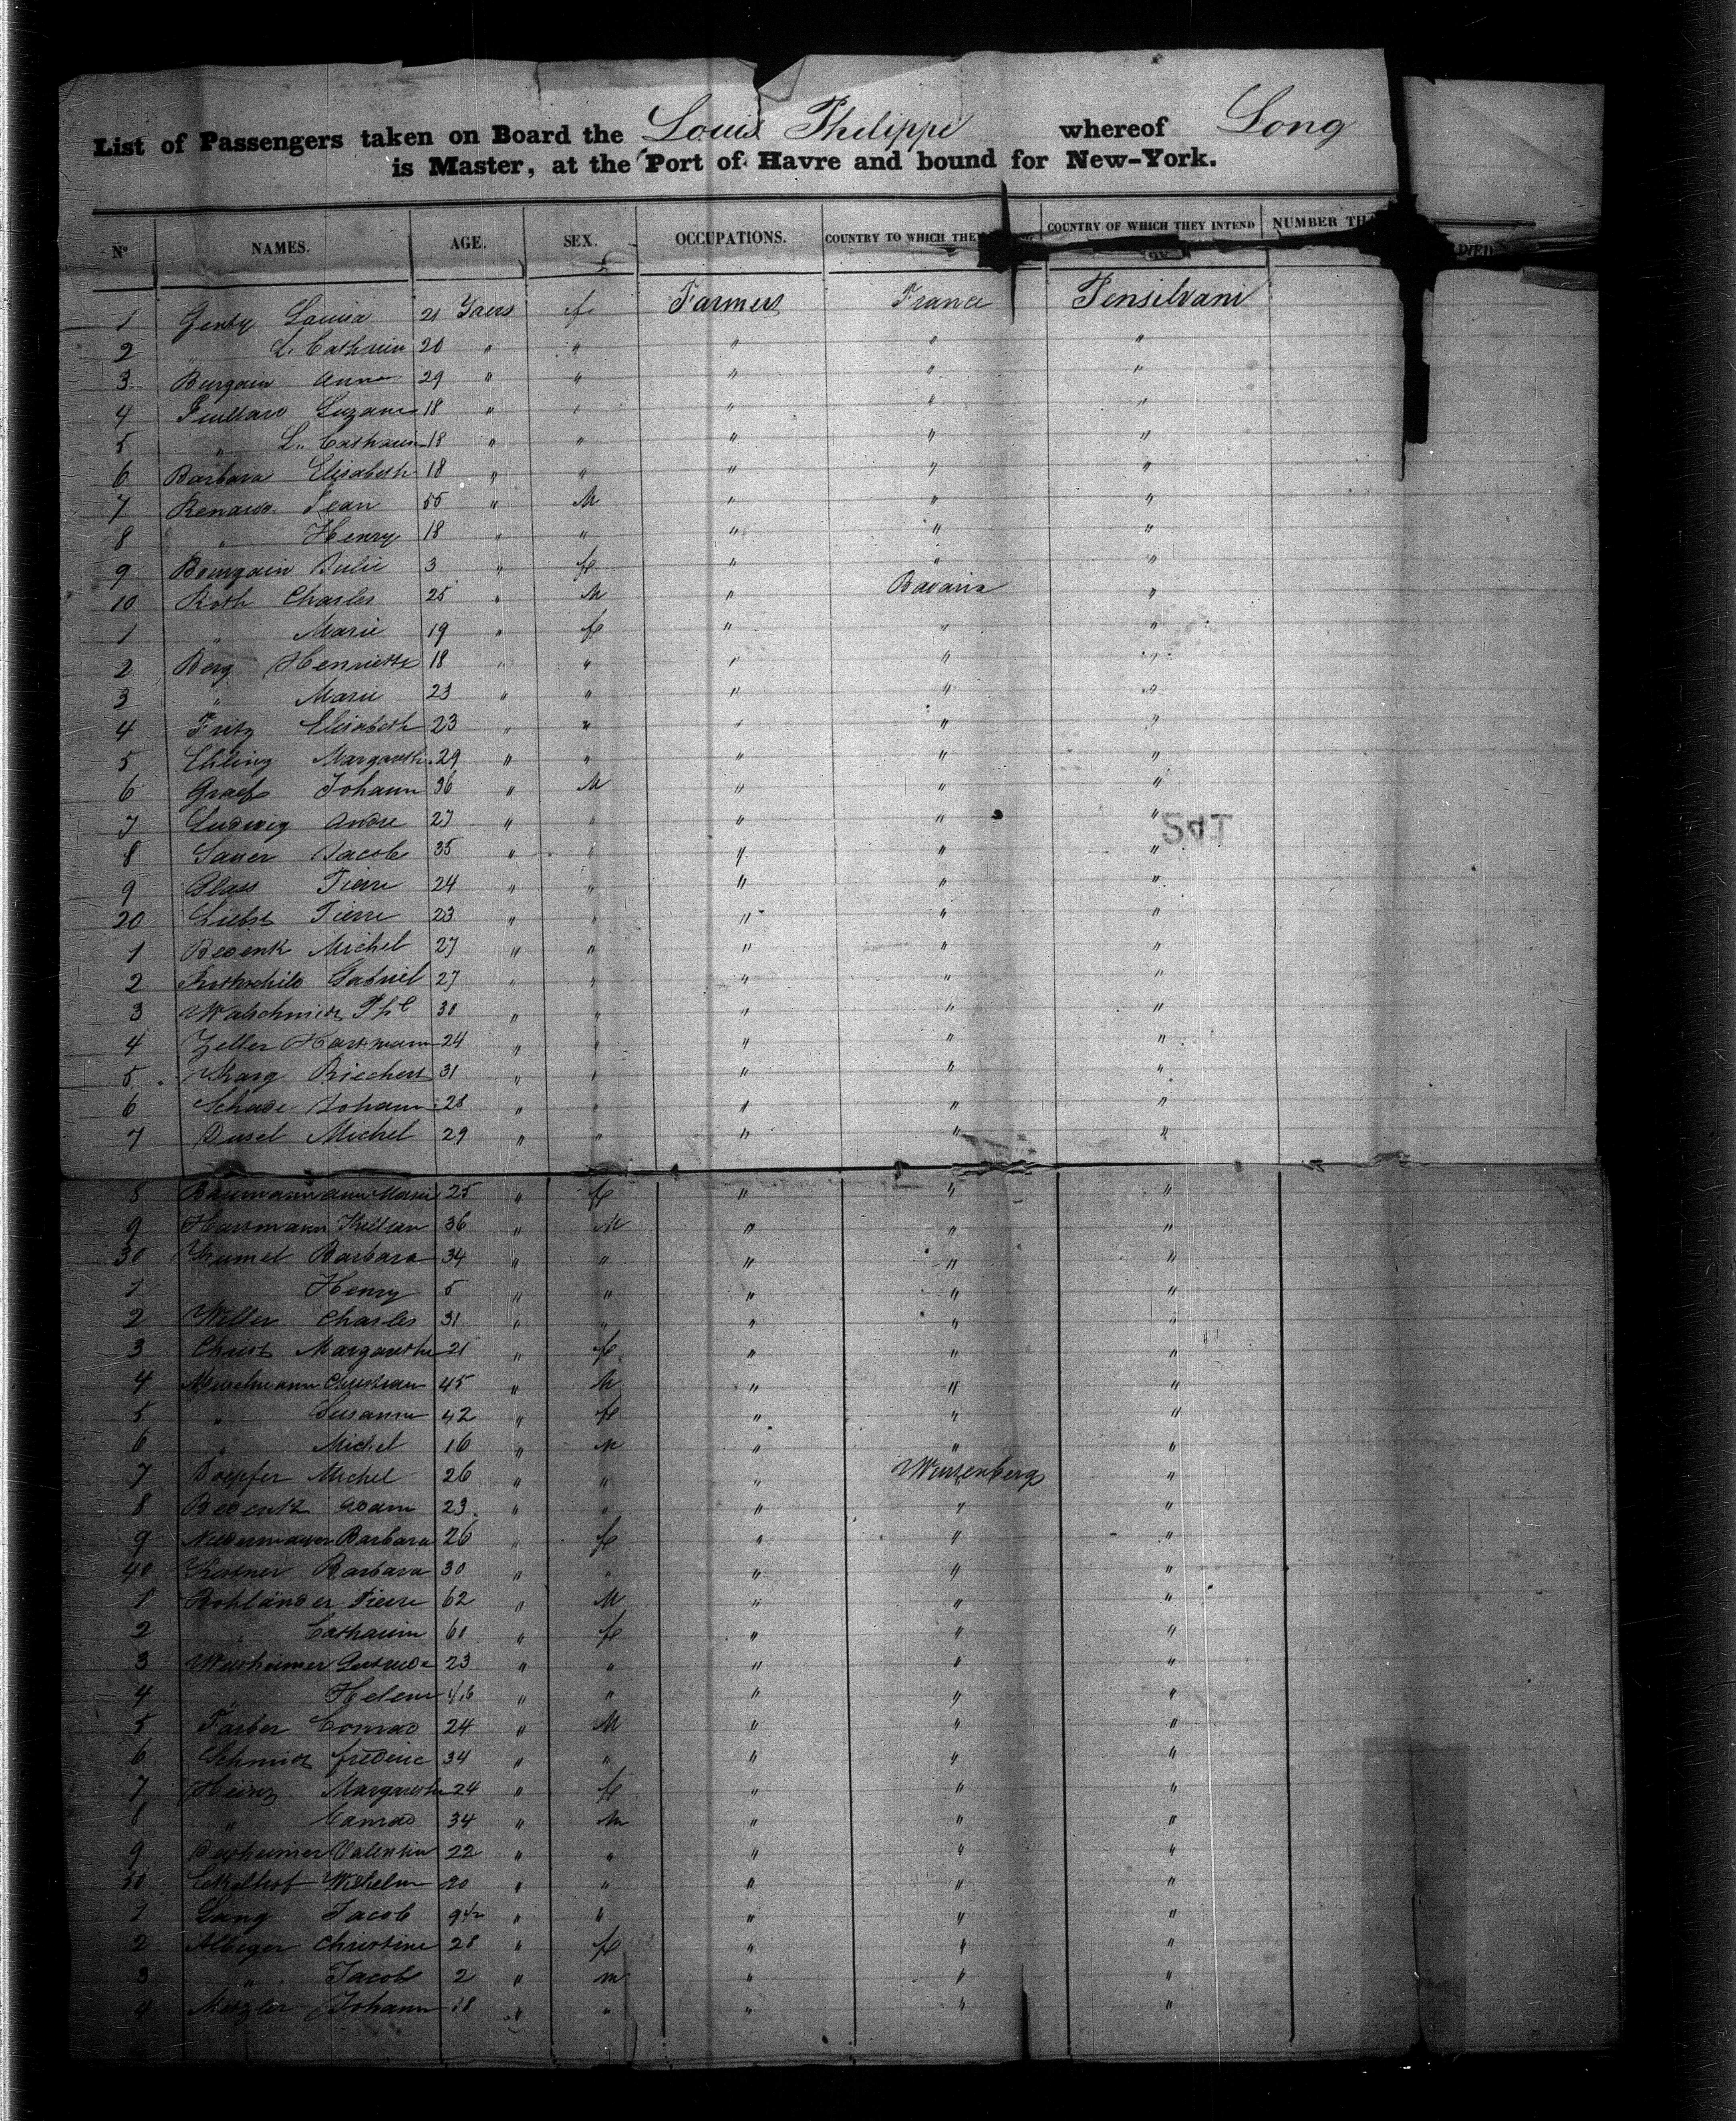 List of Passengers taken on Board the Louis Philippe whereof Long
is Master, at the Port of Havre and bound for New-York.
No NAMES. AGE. SEX. OCCUPATIONS. COUNTRY TO WHICH THE COUNTRY OF WHICH THEY INTEND NUMBER TH DIED
1 Louisa 21 Yaers f Farmers France Pensilvani
2 " L. Catharin 20 " " " " "
3 Burgain Anna 29 " " " " "
4 Suzann 18 " " " " "
5 " L. Catharin 18 " " " " "
6 Barbara Elisabeth 18 " " " " "
7 Renaud Jean 55 " M " " "
8 " Henry 18 " " " " "
9 Bourgain Julie 3 " f " " "
10 Roth Charles 25 " M " Bavaria "
1 " Marie 19 " f " " "
2 Berg Henriette 18 " " " " "
3 " Marie 23 " " " " "
4 Fritz Elisabeth 23 " " " " "
5 Ehling Margareth. 29 " " " " "
6 Graef Johann 36 " M " " "
7 Ludwig Andre 27 " " " " "
8 Sauer Jacob 35 " " " " "
9 Glass Pierre 24 " " " " "
20 Liebst Pierre 23 " " " " "
1 Bedenk Michel 27 " " " " "
2 Rothschild Gabriel 27 " " " " "
3 Walschmidt Phe 30 " " " " "
4 Zeller Hartmann 24 " " " " "
5 Karg Riechert 31 " " " " "
6 Schade Johann 28 " " " " "
7 Dusel Michel 29 " " " " "
8 Marie 25 " f " " "
9 Hartmann Killian 36 " M " " "
30 Kumel Barbara 34 " " " " "
1 Henry 5 " " " " "
2 Weller Charles 31 " " " " "
3 Christ Margaretha 21 " f " " "
4 Christian 45 " M " " "
5 " Susanna 42 " f " " "
6 " Michel 16 " M " " "
7 Doepfer Michel 26 " " " Wurtenberg "
8 Bedentz Adam 23 " " " " "
9 Niedermayer Barbara 26 " f " " "
40 Kestner Barbara 30 " " " " "
1 Rohländer Pierre 62 " M " " "
2 " Catharin 60 " f " " "
3 Gertrude 23 " " " " "
4 " Helene " " " " "
5 Farber Conrad 24 " M " " "
6 Schmidt frederic 34 " " " " "
7 Heintz Margaretha 24 " f " " "
8 " Conrad 34 " m " " "
9 Dexheimer Valentin 22 " " " " "
50 Eckelhof Wilhelm 20 " " " " "
1 Lang Jacob 9½ " " " " "
2 Albeger Christine 28 " f " " "
3 " Jacob 2 " m " " "
4 Metzler Johann 18 " " " " "